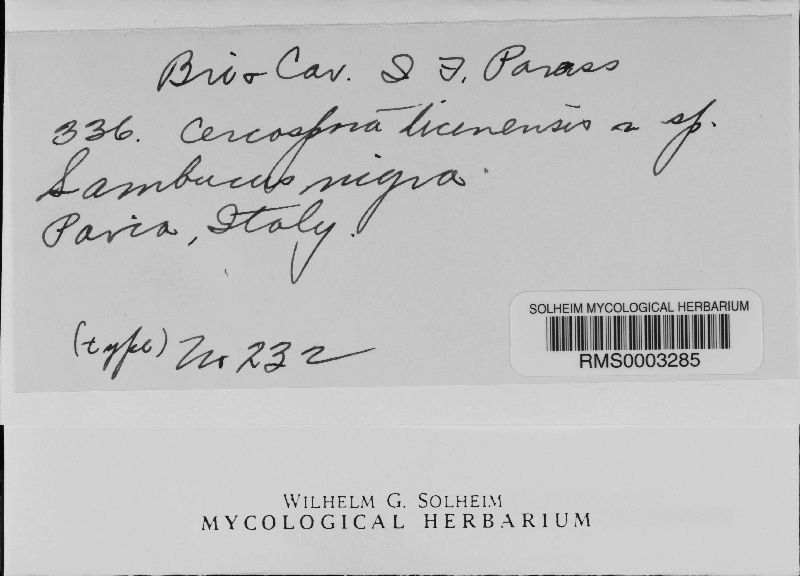 Bri & Cav. I F. Parass
336. Cercospora ticinensis n sp.
Sambucus nigra.
Pavia, Italy.
(type) No 232
SOLHEIM MYCOLOGICAL HERBARIUM
RMS0003285
WILHELM G. SOLHEIM
MYCOLOGICAL HERBARIUM